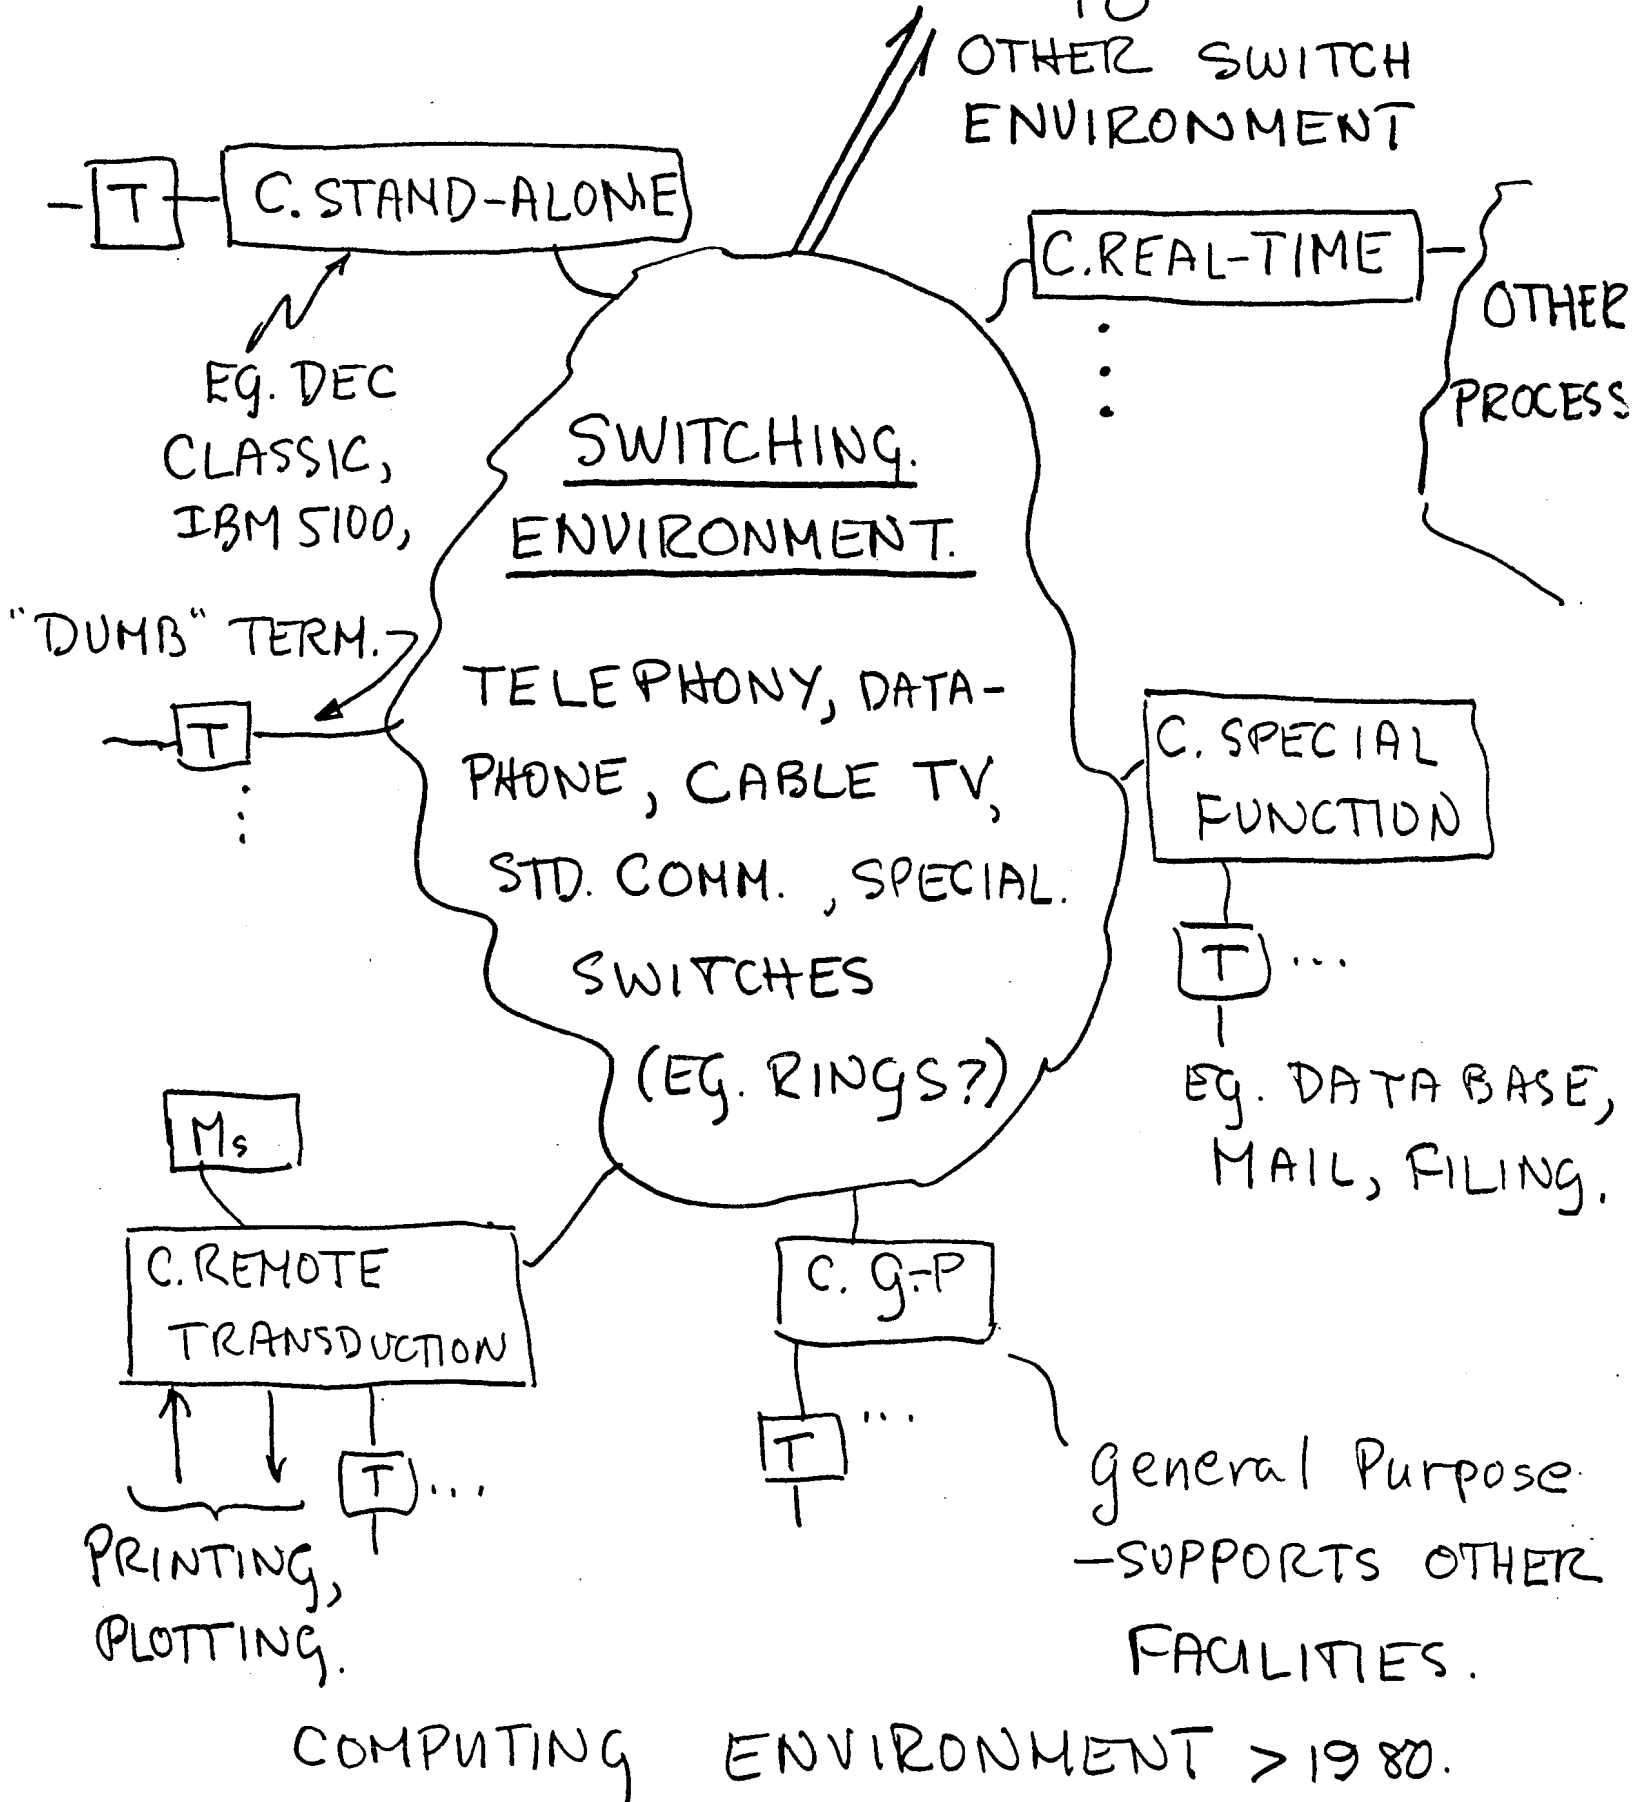 TO
OTHER SWITCH
ENVIRONMENT
T
C. STAND-ALONE
C. REAL-TIME
OTHER
PROCESS
EG. DEC
CLASSIC,
IBM 5100,
SWITCHING.
ENVIRONMENT.
"DUMB" TERM.
T
TELEPHONY, DATA-
PHONE, CABLE TV,
STD. COMM., SPECIAL.
SWITCHES
(EG. RINGS?)
C. SPECIAL
FUNCTION
T ...
EG. DATA BASE,
MAIL, FILING.
Ms
C. REMOTE
TRANSDUCTION
T ...
PRINTING,
PLOTTING.
C. G-P
T ...
General Purpose
-SUPPORTS OTHER
FACILITIES.
COMPUTING ENVIRONMENT > 1980.